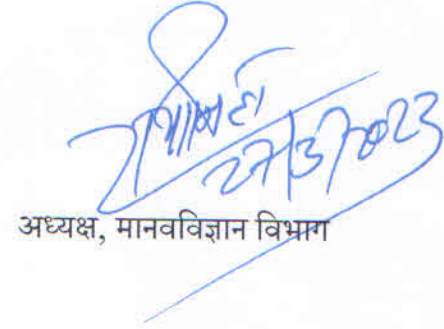 27/3/2023
अध्यक्ष, मानवविज्ञान विभाग